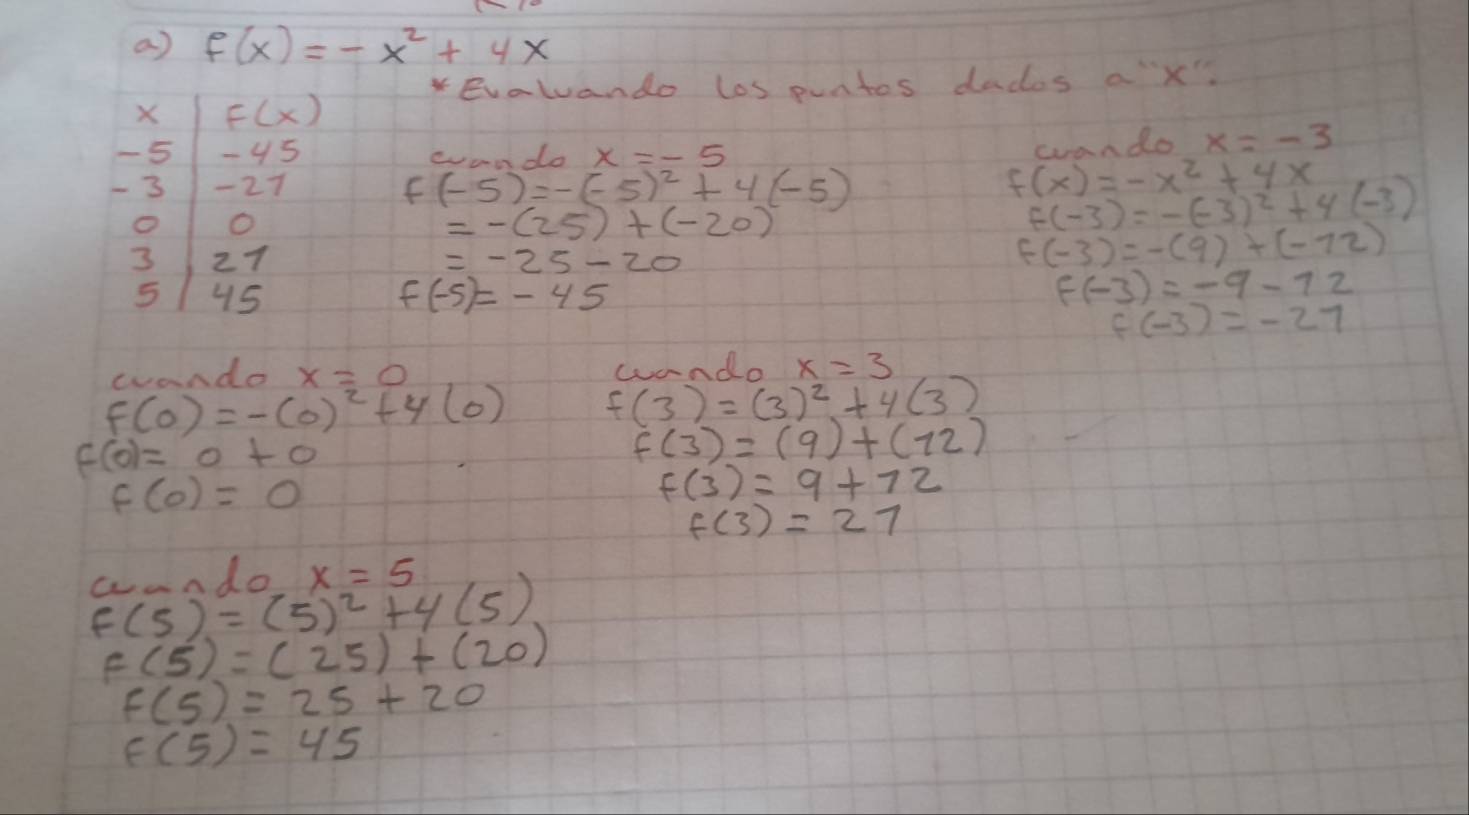 a) f(x) = -x² + 4x
* Evaluando los puntos dados a "x".
x | f(x)
-5 | -45
-3 | -21
0 | 0
3 | 21
5 | 45
cuando x = -5
f(-5) = -(-5)² + 4(-5)
= -(25) + (-20)
= -25 - 20
f(-5) = -45
cuando x = -3
f(x) = -x² + 4x
f(-3) = -(-3)² + 4(-3)
f(-3) = -(9) + (-12)
f(-3) = -9 - 12
f(-3) = -21
cuando x = 0
f(0) = -(0)² + 4(0)
f(0) = 0 + 0
f(0) = 0
cuando x = 3
f(3) = (3)² + 4(3)
f(3) = (9) + (12)
f(3) = 9 + 12
f(3) = 21
cuando x = 5
f(5) = (5)² + 4(5)
f(5) = (25) + (20)
f(5) = 25 + 20
f(5) = 45